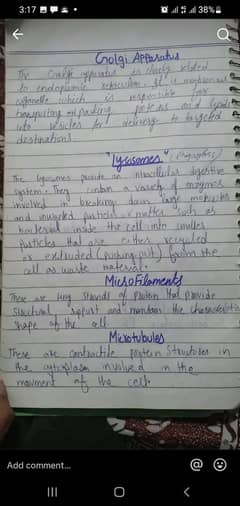 3:17
38%
Golgi Apparatus
The Golgi apparatus is closely related
to endoplasmic reticulum. It is
organelle which is responsible for
transporting and packing proteins and
into vesicles for delivery to targeted
destinations.
"lysosomes"
The lysosomes provide an intracellular digestive
system. They contain a variety of enzymes
involved in breaking down large molecules
and particles of matter such as
bacteria inside the cell into smaller
particles that are either recycled
or extruded (pushing out) from the
cell as waste material.
MicroFilaments
These are long strands of protein that provide
structural support and maintain the characteristic
shape of the cell
Microtubules
These are contractile protein structures in
the cytoplasm involved in the
movment of the cell.
Add comment...